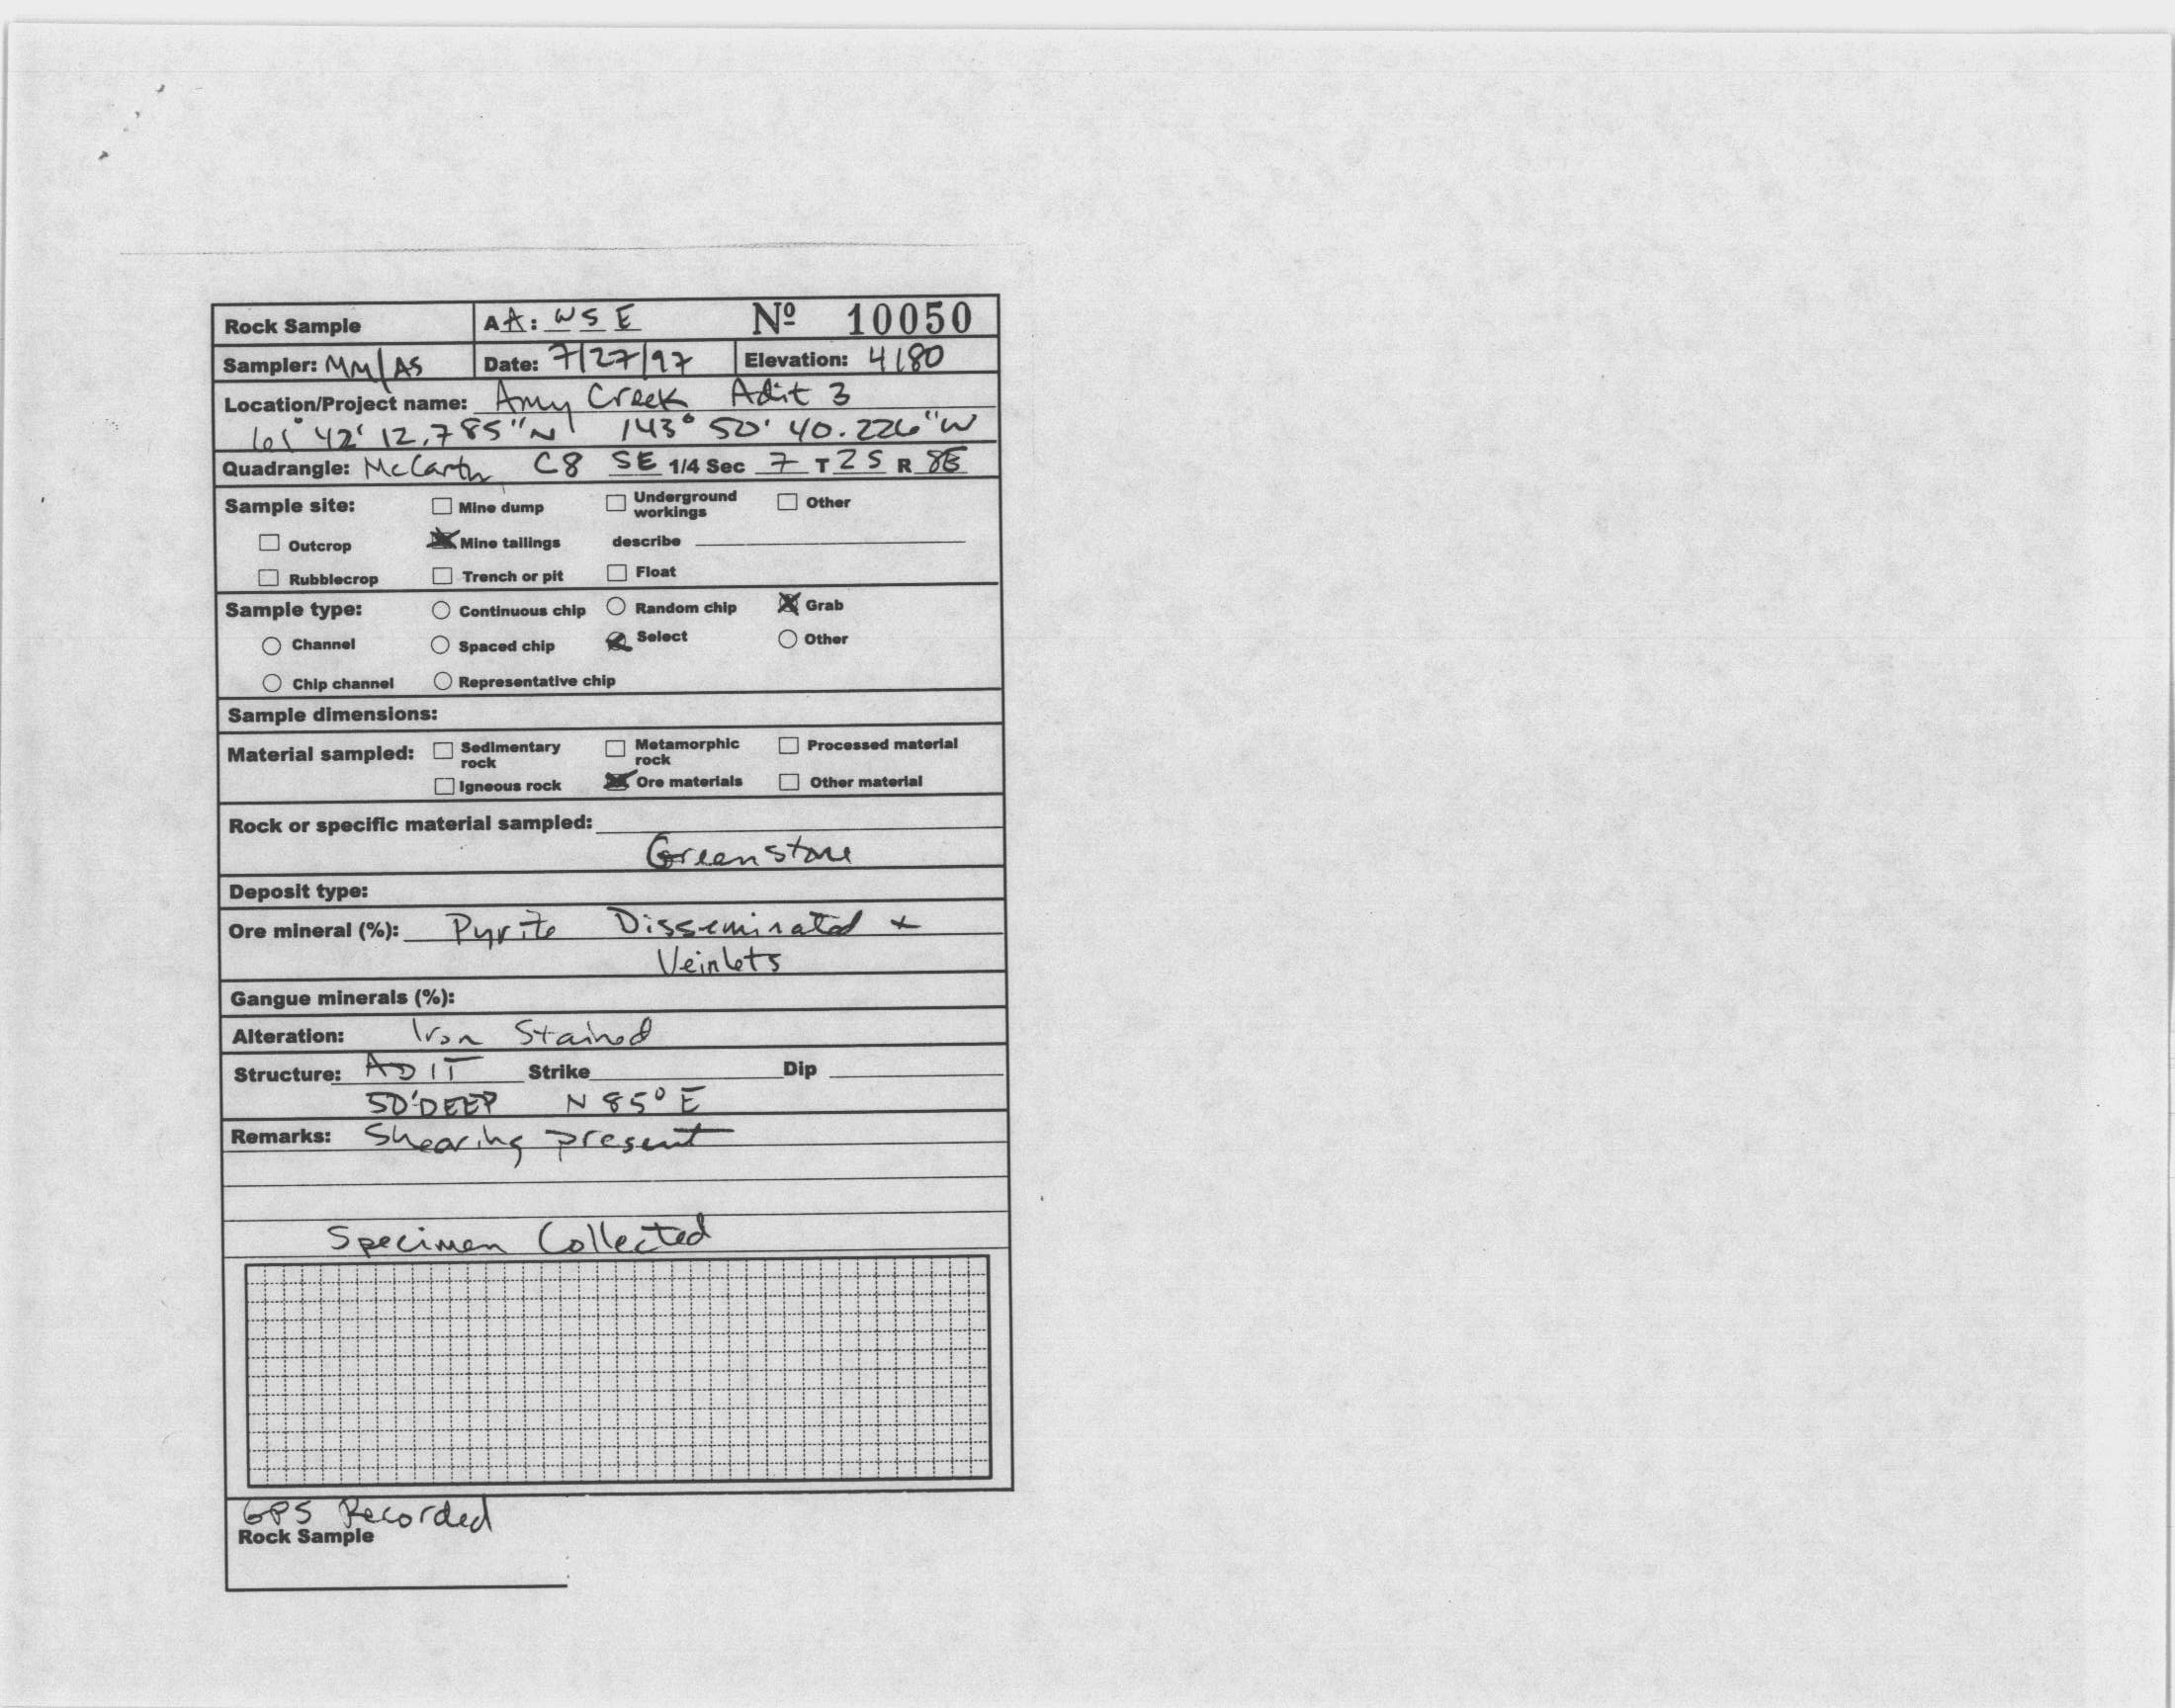 Rock Sample AA: WSE Nº 10050
Sampler: MM/AS Date: 7/27/97 Elevation: 4180
Location/Project name: Amy Creek Adit 3
61° 42' 12.785"N 143° 50' 40.226"W
Quadrangle: McCarthy C8 SE 1/4 Sec 7 T 2S R 8E
Sample site: Mine dump Underground workings Other
Outcrop Mine tailings describe
Rubblecrop Trench or pit Float
Sample type: Continuous chip Random chip Grab
Channel Spaced chip Select Other
Chip channel Representative chip
Sample dimensions:
Material sampled: Sedimentary rock Metamorphic rock Processed material
Igneous rock Ore materials Other material
Rock or specific material sampled:
Greenstone
Deposit type:
Ore mineral (%): Pyrite Disseminated +
Veinlets
Gangue minerals (%):
Alteration: Iron Stained
Structure: ADIT Strike Dip
50' DEEP N 85° E
Remarks: Shearing present
Specimen Collected
GPS Recorded
Rock Sample